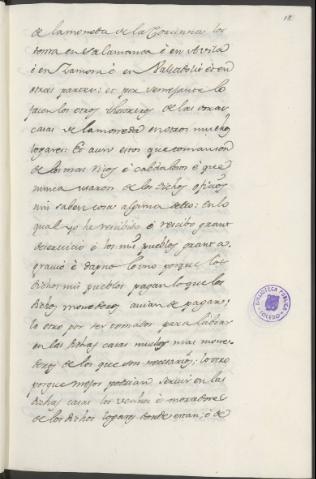 18
de la moneda de la Coruña los
toma en Salamanca é en Avila
é en Zamora é en Valladolid é en
otras partes; et por semejante lo
facen los otros thesoreros de las otras
casas de la moneda en otros muchos
logares: Et aun estos que toman son
de los mas ricos é cabdalosos é que
nunca usaron de los dichos oficios
nin saben cosa alguna dello: en lo
qual yo he recibido é recibo grant
deservicio é los mis pueblos grant a-
gravio é dapno: lo uno porque los
dichos mis pueblos pagan lo que los
dichos monederos avian de pagar;
lo otro por ser tomados para labrar
en las dichas casas muchos mas mone-
deros de los que son necesarios; lo otro
porque mejor podrian servir en las
dichas casas los vecinos é moradores
de los dichos logares donde estan, é de
BIBLIOTECA PUBLICA
TOLEDO